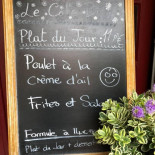 Le C
Plat du Jour : 11€
Poulet à la
crème d'ail
Frites et Sala
Formule à
Plat du Jour +